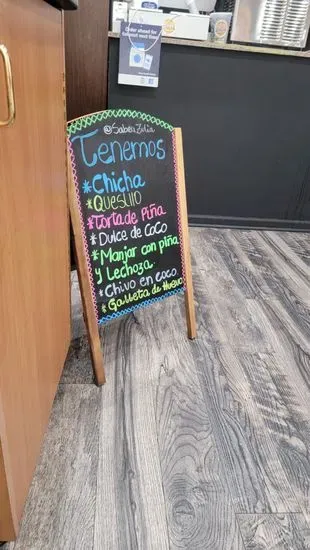 Order ahead for
takeout next time
@SaborZulia
Tenemos
*Chicha
*Quesillo
*Torta de Piña
*Dulce de Coco
*Manjar con piña
y Lechoza
*Chivo en coco
*Galleta de Huevo